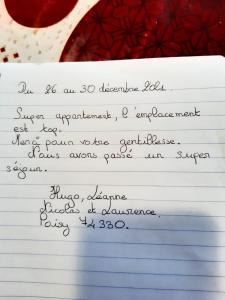 Du 26 au 30 décembre 2021.
Super appartement, l'emplacement
est top.
Merci pour votre gentillesse.
Nous avons passé un super
séjour.
Hugo, Léanne
Nicolas et Laurence.
Poisy 74330.